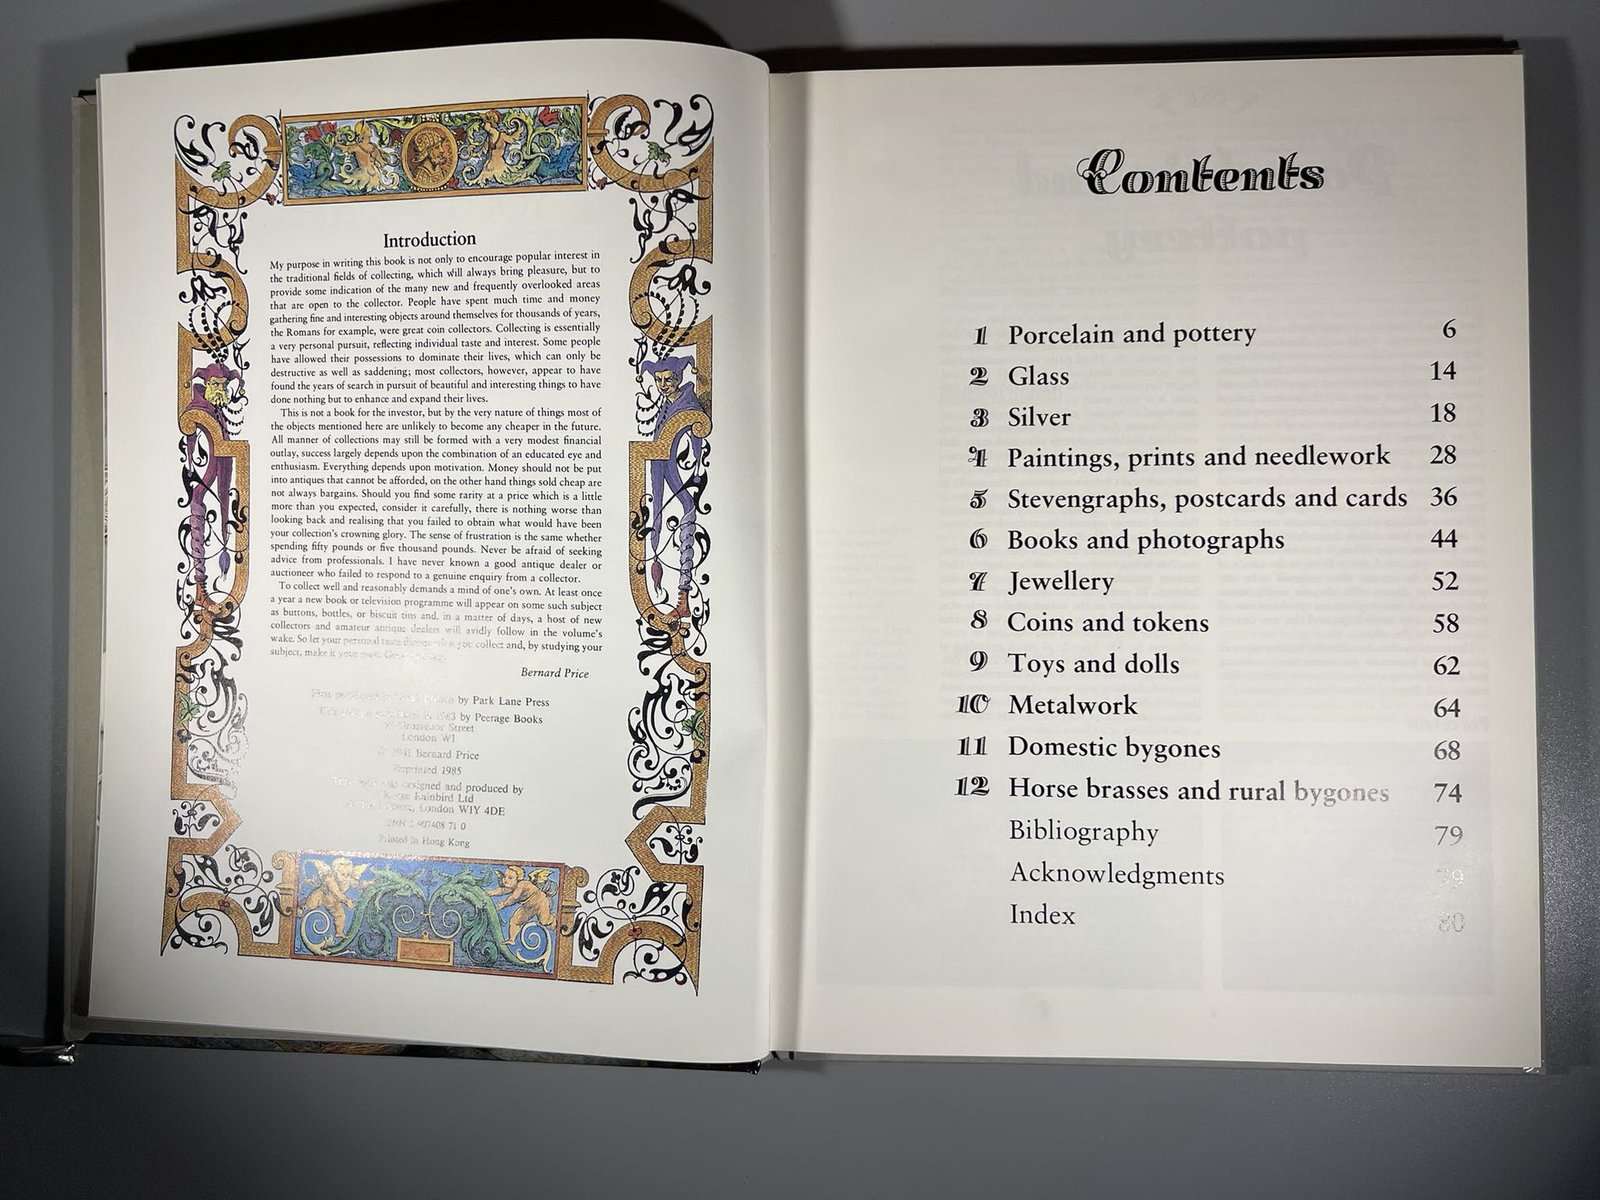 Introduction
My purpose in writing this book is not only to encourage popular interest in
the traditional fields of collecting, which will always bring pleasure, but to
provide some indication of the many new and frequently overlooked areas
that are open to the collector. People have spent much time and money
gathering fine and interesting objects around themselves for thousands of years,
the Romans for example, were great coin collectors. Collecting is essentially
a very personal pursuit, reflecting individual taste and interest. Some people
have allowed their possessions to dominate their lives, which can only be
destructive as well as saddening; most collectors, however, appear to have
found the years of search in pursuit of beautiful and interesting things to have
done nothing but to enhance and expand their lives.
This is not a book for the investor, but by the very nature of things most of
the objects mentioned here are unlikely to become any cheaper in the future.
All manner of collections may still be formed with a very modest financial
outlay, success largely depends upon the combination of an educated eye and
enthusiasm. Everything depends upon motivation. Money should not be put
into antiques that cannot be afforded, on the other hand things sold cheap are
not always bargains. Should you find some rarity at a price which is a little
more than you expected, consider it carefully, there is nothing worse than
looking back and realising that you failed to obtain what would have been
your collection's crowning glory. The sense of frustration is the same whether
spending fifty pounds or five thousand pounds. Never be afraid of seeking
advice from professionals. I have never known a good antique dealer or
auctioneer who failed to respond to a genuine enquiry from a collector.
To collect well and reasonably demands a mind of one's own. At least once
a year a new book or television programme will appear on some such subject
as buttons, bottles, or biscuit tins and, in a matter of days, a host of new
collectors and amateur antique dealers will avidly follow in the volume's
wake. So let your personal taste what you collect and, by studying your
subject, make it your own.
Bernard Price
First published in by Park Lane Press
1983 by Peerage Books
Grosvenor Street
London W1
Bernard Price
Reprinted 1985
designed and produced by
Rainbird Ltd
London W1Y 4DE
Printed in Hong Kong
Contents
1 Porcelain and pottery 6
2 Glass 14
3 Silver 18
4 Paintings, prints and needlework 28
5 Stevengraphs, postcards and cards 36
6 Books and photographs 44
7 Jewellery 52
8 Coins and tokens 58
9 Toys and dolls 62
10 Metalwork 64
11 Domestic bygones 68
12 Horse brasses and rural bygones 74
Bibliography 79
Acknowledgments
Index 80